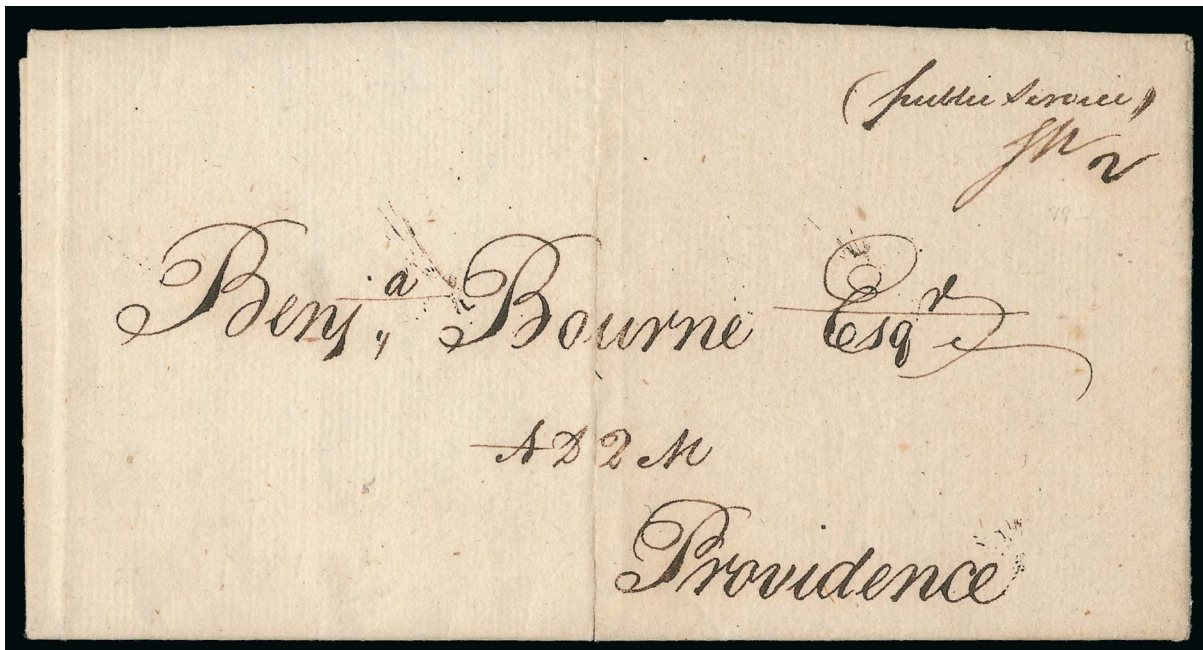 (public Service)
2
Benj,,ᵃ Bourne Esqʳ
A D Q M
Providence